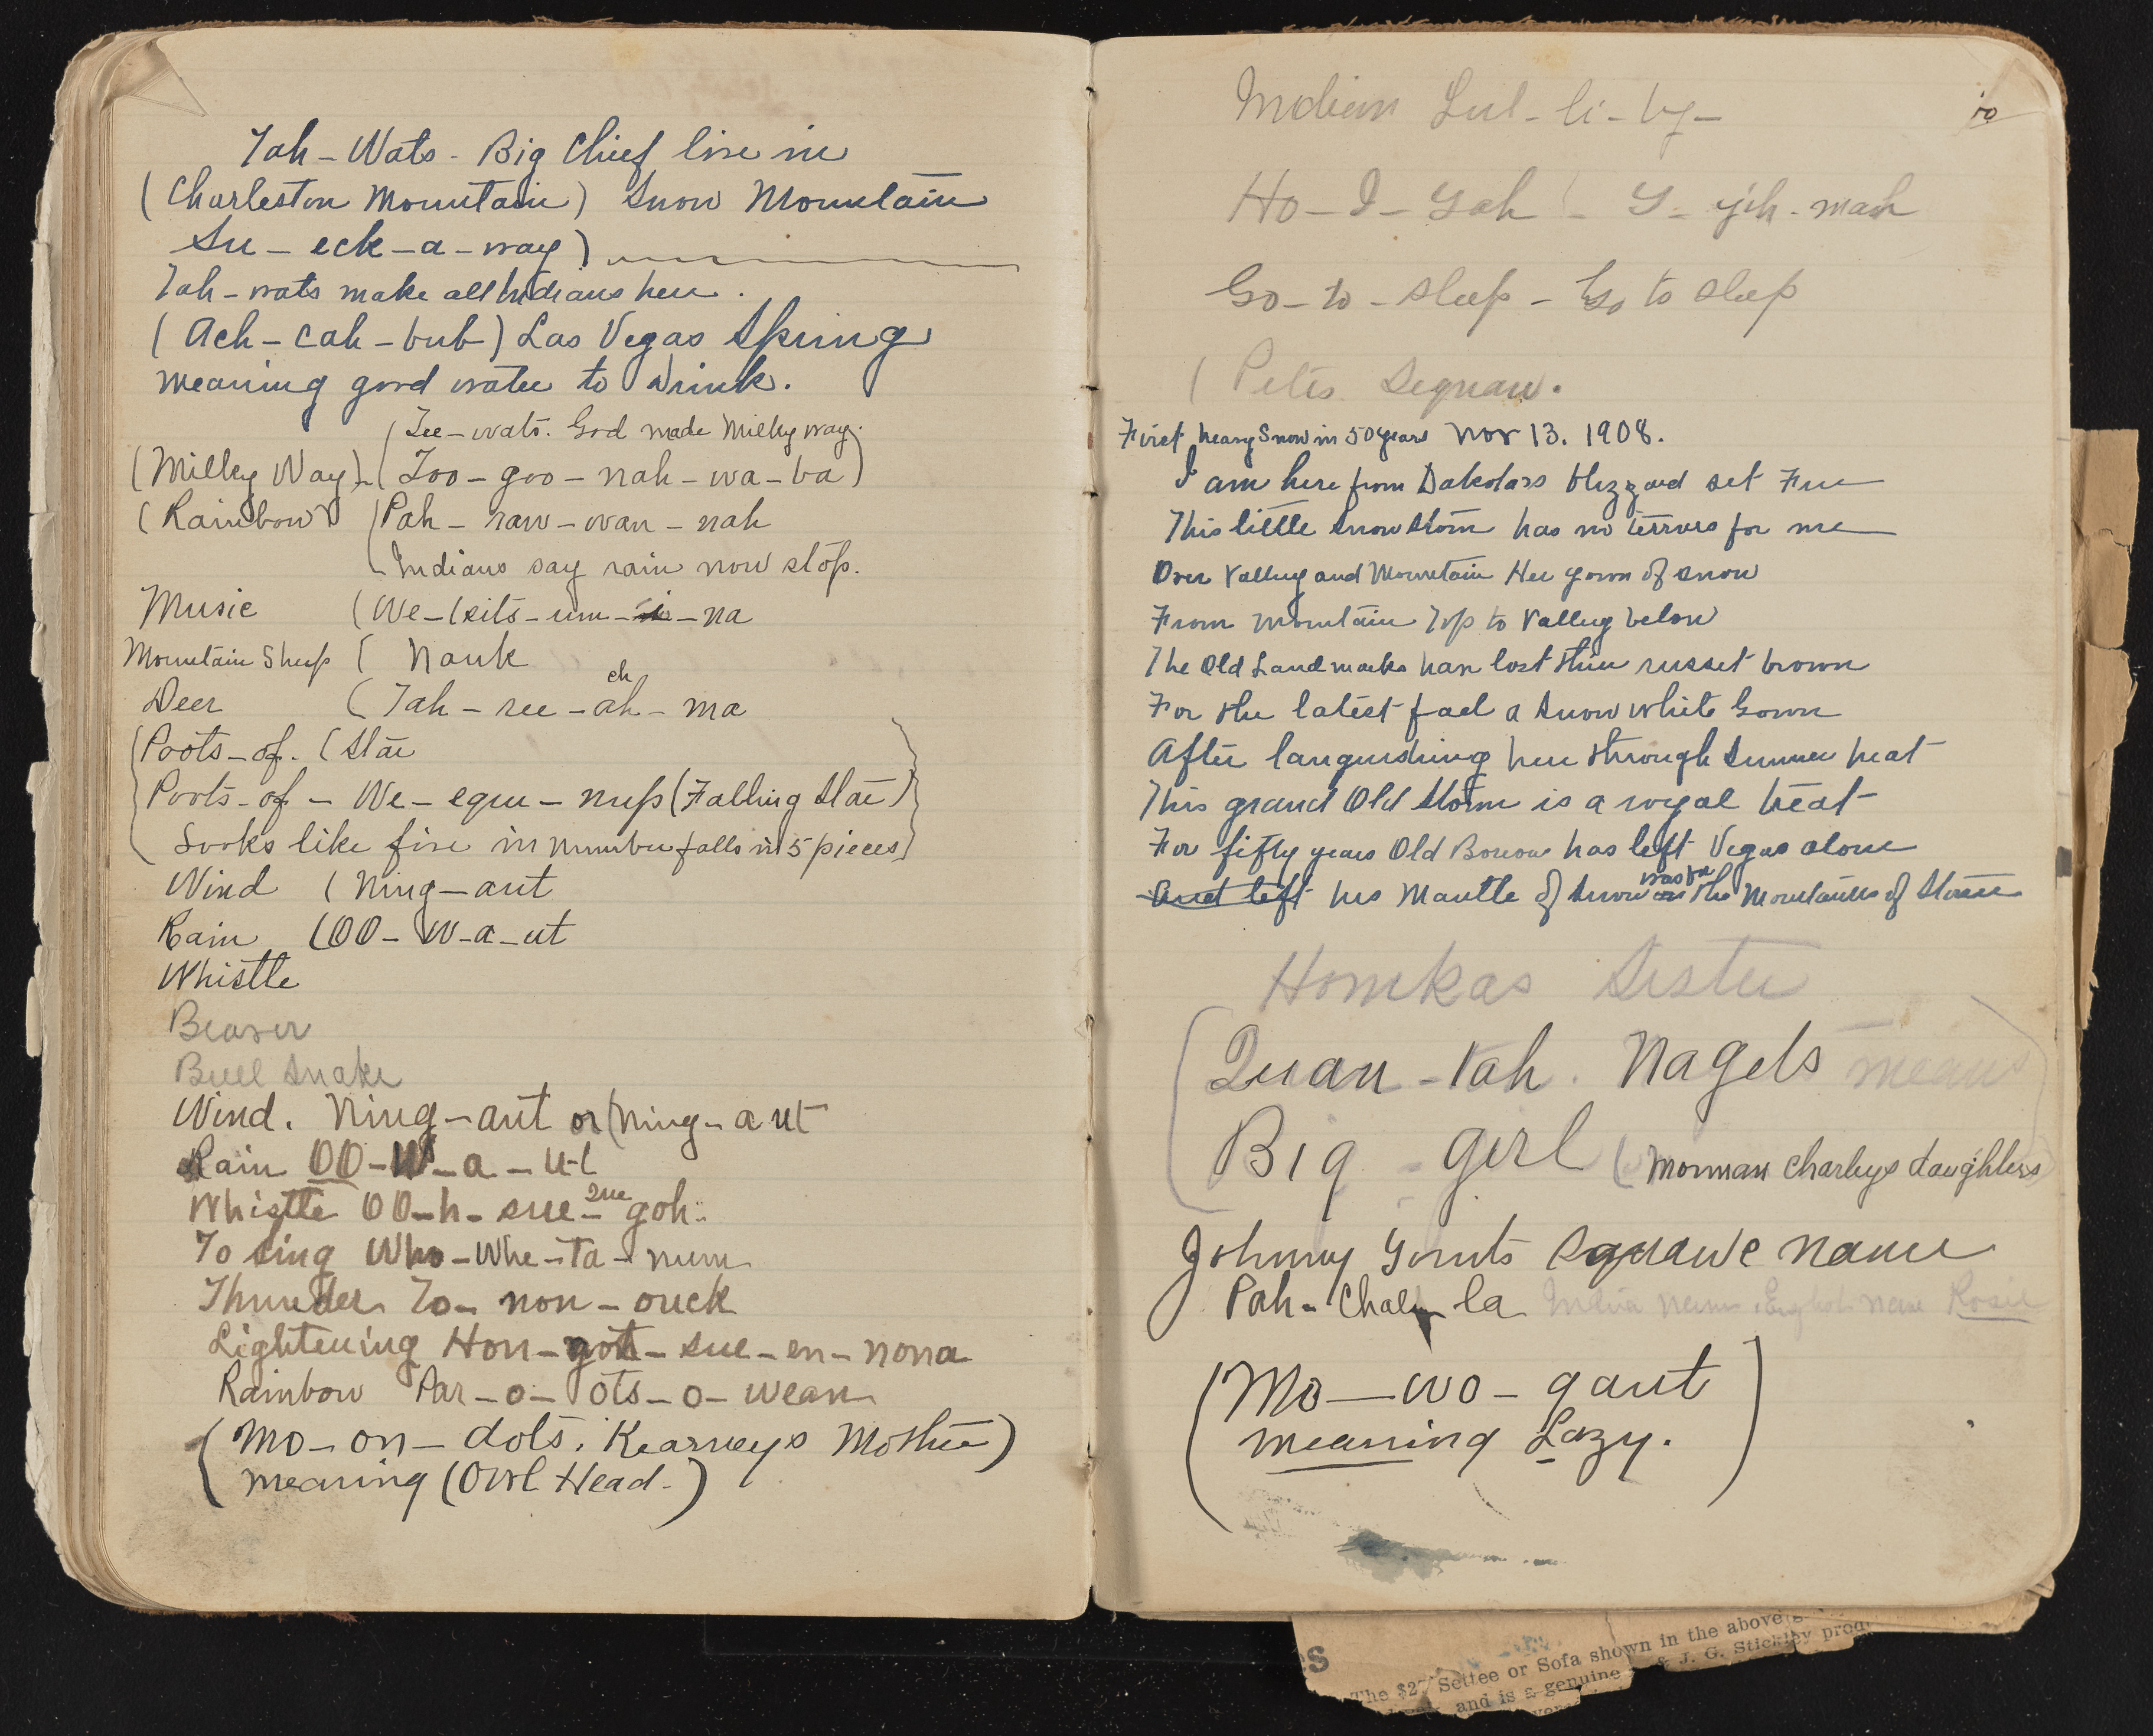 Tah-Wats. Big Chief live in
(Charleston Mountain) Snow Mountain
Su-eck-a-way)
Tah-wats make all Indians here.
(Ach-cah-bub) Las Vegas Spring
meaning good water to drink.
(Tee-wats. God made Milky way.
(Milky Way)-(Too-goo-nah-wa-ba)
(Rainbow) (Pah-raw-wan-nah
Indians say rain now stop.
Music (We-tsits-um-i-na
Mountain Sheep ( Nauk
ch
Deer (Tah-ree-ah-ma
(Poots-of. (Star
Poots-of-We-equ-nups (Falling Star)
Looks like fire in number falls in 5 pieces)
Wind (Ning-aut
Rain (OO-W-a-ut
Whistle
Beaver
Bull Snake
Wind. Ning-aut or (Ning-aut
Rain OO-W-a-ut
Whistle OO-h-sue-que goh.
To sing Who-Whe-ta-num
Thunder. To-non-ouck
Lightening Hon-got-sue-en-nona
Rainbow Par-o-ots-o-wean
(Mo-on-dots. Kearneys Mother)
meaning (Owl Head.)
10
Indian Lul-li-by-
Ho-I-Yah - Y-yih-mah
Go-to-sleep-Go to sleep
(Petes Sequaw.
First heavy Snow in 50 years Nov 13. 1908.
I am here from Dakotas blizzard set Free
This little snow storm has no terrors for me
Over Valley and Mountain Her gown of snow
From Mountain Top to Valley below
The Old Landmarks have lost their russet brown
For the latest fad a snow white Gown
After languishing here through Summer heat
This grand Old Storm is a royal treat
For fifty years Old Boreas has left Vegas alone
And left his Mantle of Snow on the Mountains of Stone
Homkas Sister
(Quan-tah. Nagets means
Big girl (Morman Charleys daughters
Johnny Younts Sqauwe name
Pah-Chal-la India name. English name Rosie
(Mo-wo-gant
meaning Lazy.)
es
The $27 Settee or Sofa shown in the above
and is a genuine & J. G. Stickley prod